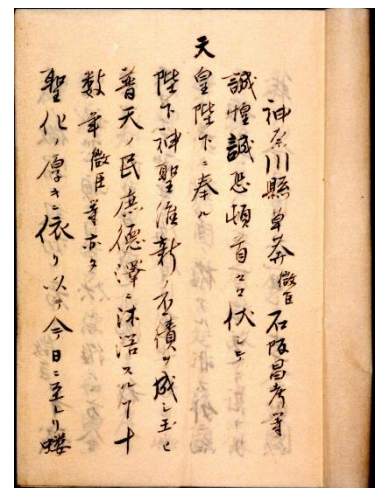 神奈川縣草莽微臣石阪昌孝等
誠惶誠恐頓首々々伏シテ
天
皇陛下ニ奉ル
陛下神聖維新ノ丕績ヲ成シ玉ヒ
普天ノ民庶德澤ニ沐浴スルヿ十
数年微臣等亦タ
聖化ノ厚キニ依リ以テ今日ニ至レリ螻